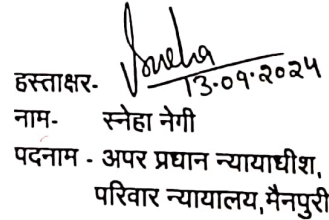 Sneha
हस्ताक्षर- 13-09-2024
नाम- स्नेहा नेगी
पदनाम - अपर प्रधान न्यायाधीश,
परिवार न्यायालय, मैनपुरी